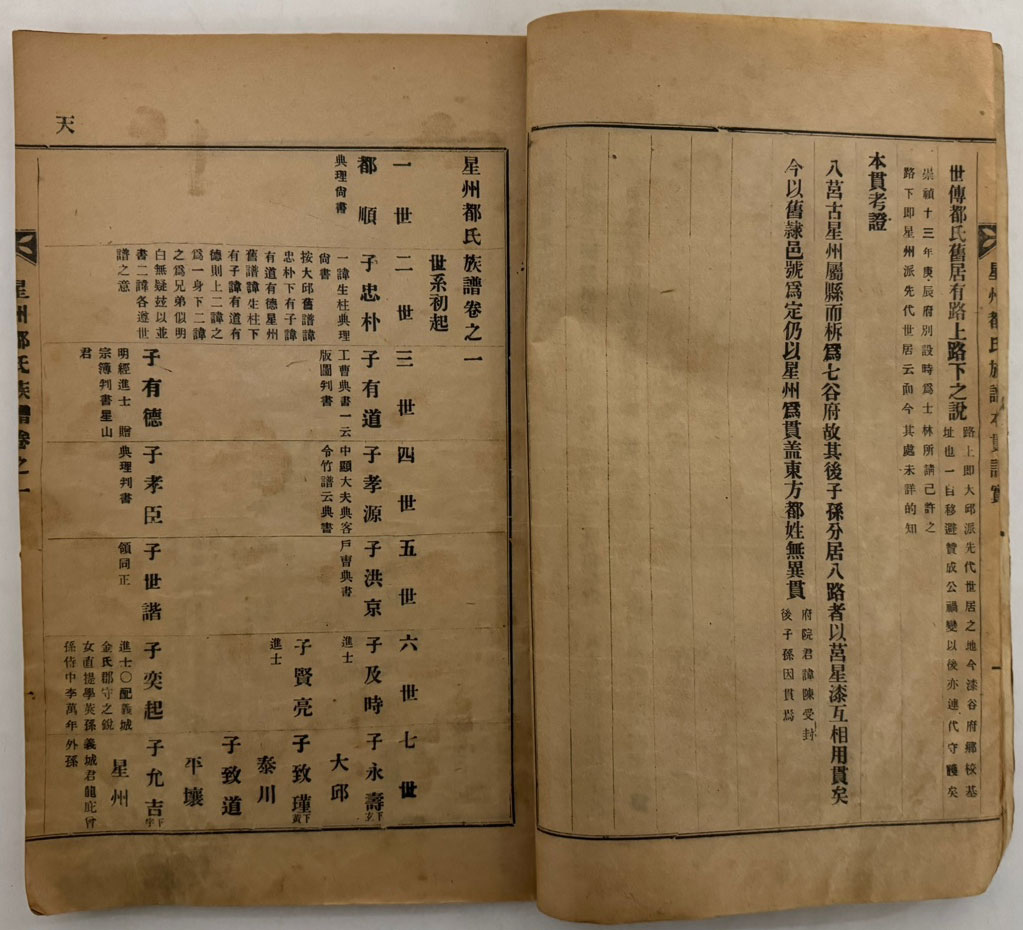 世傳都氏舊居有路上路下之說
路上即大邱派先代世居之地今漆谷府鄉校基
址也一自移避贊成公禍變以後亦連代守護矣
崇禎十三年庚辰府別設時爲士林所請已許之
路下即星州派先代世居云而今其處未詳的知
本貫考證
八莒古星州屬縣而柝爲七谷府故其後子孫分居八路者以莒星漆互相用貫矣
今以舊隷邑號爲定仍以星州爲貫盖東方都姓無異貫
府院君諱陳受封
後子孫因貫焉
天
星州都氏族譜卷之一
世系初起
一世
二世
三世
四世
五世
六世
七世
都順
典理尙書
子忠朴
一諱生柱典理
尙書
按大邱舊譜諱
忠朴下有子諱
有道有德星州
舊譜諱生柱下
有子諱有道有
德則上二諱之
爲一身下二諱
之爲兄弟似明
白無疑玆以並
書二諱各遵世
譜之意
子有道
工曹典書一云
版圖判書
子孝源
中顯大夫典客
令竹譜云典書
子洪京
戶曹典書
子及時
進士
子永壽
下玄
大邱
子賢亮
進士
子致瑾
下黃
泰川
子致道
平壤
子有德
明經進士 贈
宗簿判書星山
君
子孝臣
典理判書
子世諧
領同正
子奕起
進士〇配義城
金氏郡守之銳
女直提學英孫
孫侍中李萬年
外孫
子允吉
下宇
義城君龍庇曾
星州
星州都氏族譜卷之一